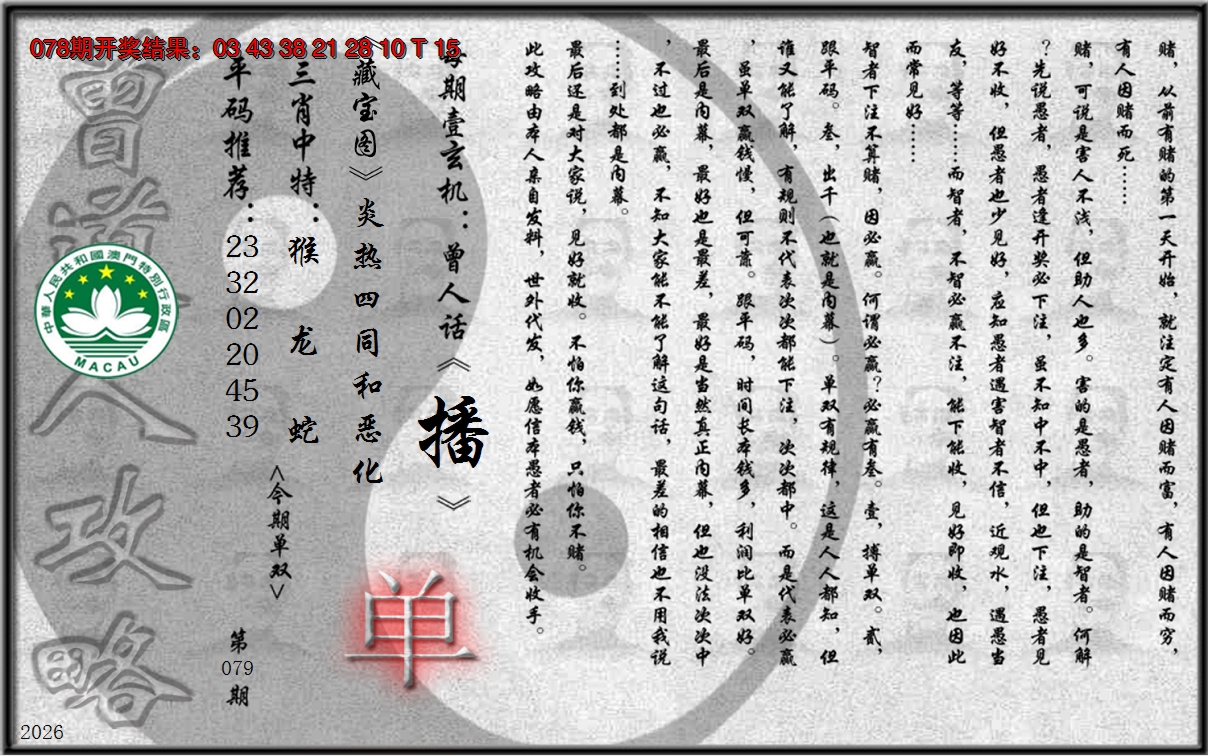 078期开奖结果：03 43 38 21 28 10 T 15
赌，从前有赌的第一天开始，就注定有人因赌而富，有人因赌而穷，
有人因赌而死……
赌，可说是害人不浅，但助人也多。害的是愚者，助的是智者。何解
？先说愚者，愚者逢开奖必下注，虽不知中不中，但也下注，愚者见
好不收，但愚者也少见好，应知愚者遇害智者不信，近观水，遇愚当
友，等等……而智者，不智必赢不注，能下能收，见好即收，也因此
而常见好……
智者下注不算赌，因必赢。何谓必赢？必赢有叁。壹，搏单双。贰，
跟平码。叁，出千（也就是内幕）。单双有规律，这是人人都知，但
谁又能了解，有规则不代表次次都能下注，次次都中。而是代表必赢
，虽单双赢钱慢，但可靠。跟平码，时间长本钱多，利润比单双好。
最后是内幕，最好也是最差，最好是当然真正内幕，但也没法次次中
，不过也必赢，不知大家能不能了解这句话，最差的相信也不用我说
……到处都是内幕。
最后还是对大家说，见好就收。不怕你赢钱，只怕你不赌。
此攻略由本人亲自发料，世外代发，如愿信本愚者必有机会收手。
每期壹玄机：曾人话《播》
《藏宝图》炎热四同和恶化
单
三肖中特：猴 龙 蛇
<今期单双>
平码推荐：
23
32
02
20
45
39
第
079
期
曾道人攻略
中華人民共和國澳門特別行政區
MACAU
2026